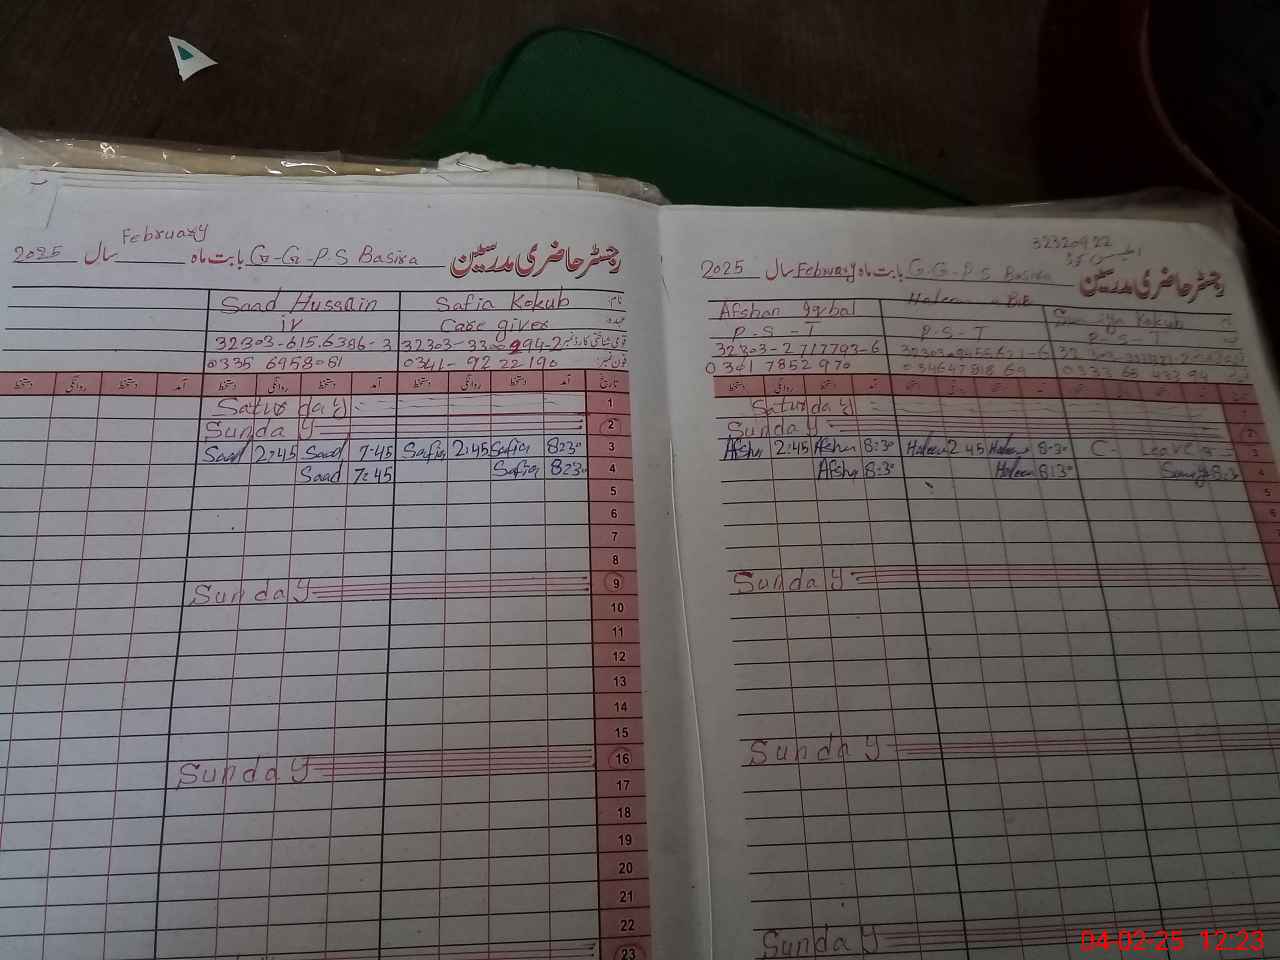 رجسٹر حاضری مدرسین G-G-P-S Basira بابت ماہ February سال 2025
نام Safia Kokub Saad Hussain
عہدہ Care giver iv
قومی شناختی کارڈ نمبر
32303-615.6386-3
فون نمبر 0341-92 22 190 0335 6958051
تاریخ آمد دستخط روانگی دستخط آمد دستخط روانگی دستخط آمد دستخط روانگی دستخط
1 Saturday
2 Sunday
3 8:30 Safia 2:45 Safia 7:45 Saad 2:45 Saad
4 8:30 Safia 7:45 Saad
5
6
7
8
9 Sunday
10
11
12
13
14
15
16 Sunday
17
18
19
20
21
22
23
32320922
رجسٹر حاضری مدرسین G.G-P.S Basira بابت ماہ February سال 2025
Kokub Afshan Iqbal
P-S-T P-S-T P-S-T
32303-2717793-6
034647818 69 0301 7852970
آمد دستخط روانگی دستخط
1 Saturday
2 Sunday
3 C- Leave 8:30 Haleem 2:45 Haleem 8:30 Afshan 2:45 Afshan
4 8:30 8:30 Haleem 8:30 Afshan
5
6
Sunday
Sunday
Sunday
04-02-25 12:23